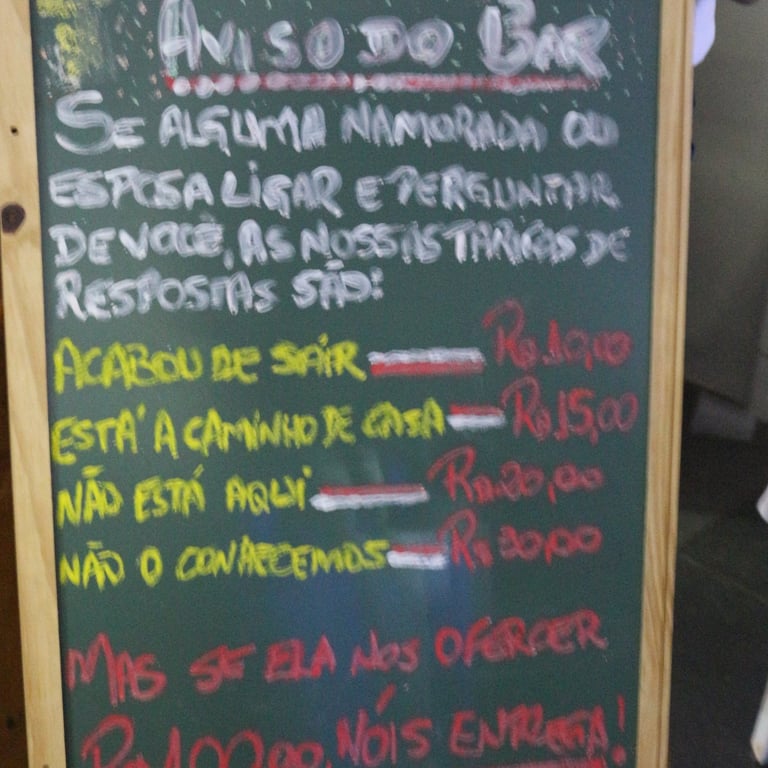 AVISO DO BAR
SE ALGUMA NAMORADA OU
ESPOSA LIGAR E PERGUNTAR
DE VOCÊ, AS NOSSAS TARIFAS DE
RESPOSTAS SÃO:
ACABOU DE SAIR R$10,00
ESTÁ A CAMINHO DE CASA R$15,00
NÃO ESTÁ AQUI R$20,00
NÃO O CONHECEMOS R$30,00
MAS SE ELA NOS OFERCER
R$100,00, NÓIS ENTREGA!